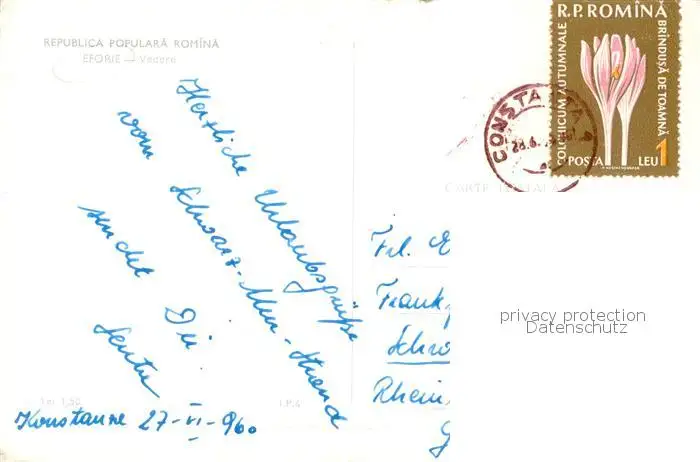 REPUBLICA POPULARĂ ROMÎNĂ
EFORIE – Vedere
Herzliche Urlaubsgrüße
vom Schwarz-Meer-Strand
sendet Dir
Konstanze 27-VI-960
Lei 1,50
I.P.4
R.P. ROMÎNA
COLCHICUM AUTUMNALE
BRÎNDUȘĂ DE TOAMNĂ
POSTA LEU 1
CONSTANȚA
28.6.
CARTE POȘTALĂ
Frl. E
Frank
Schw
Rhein
privacy protection
Datenschutz